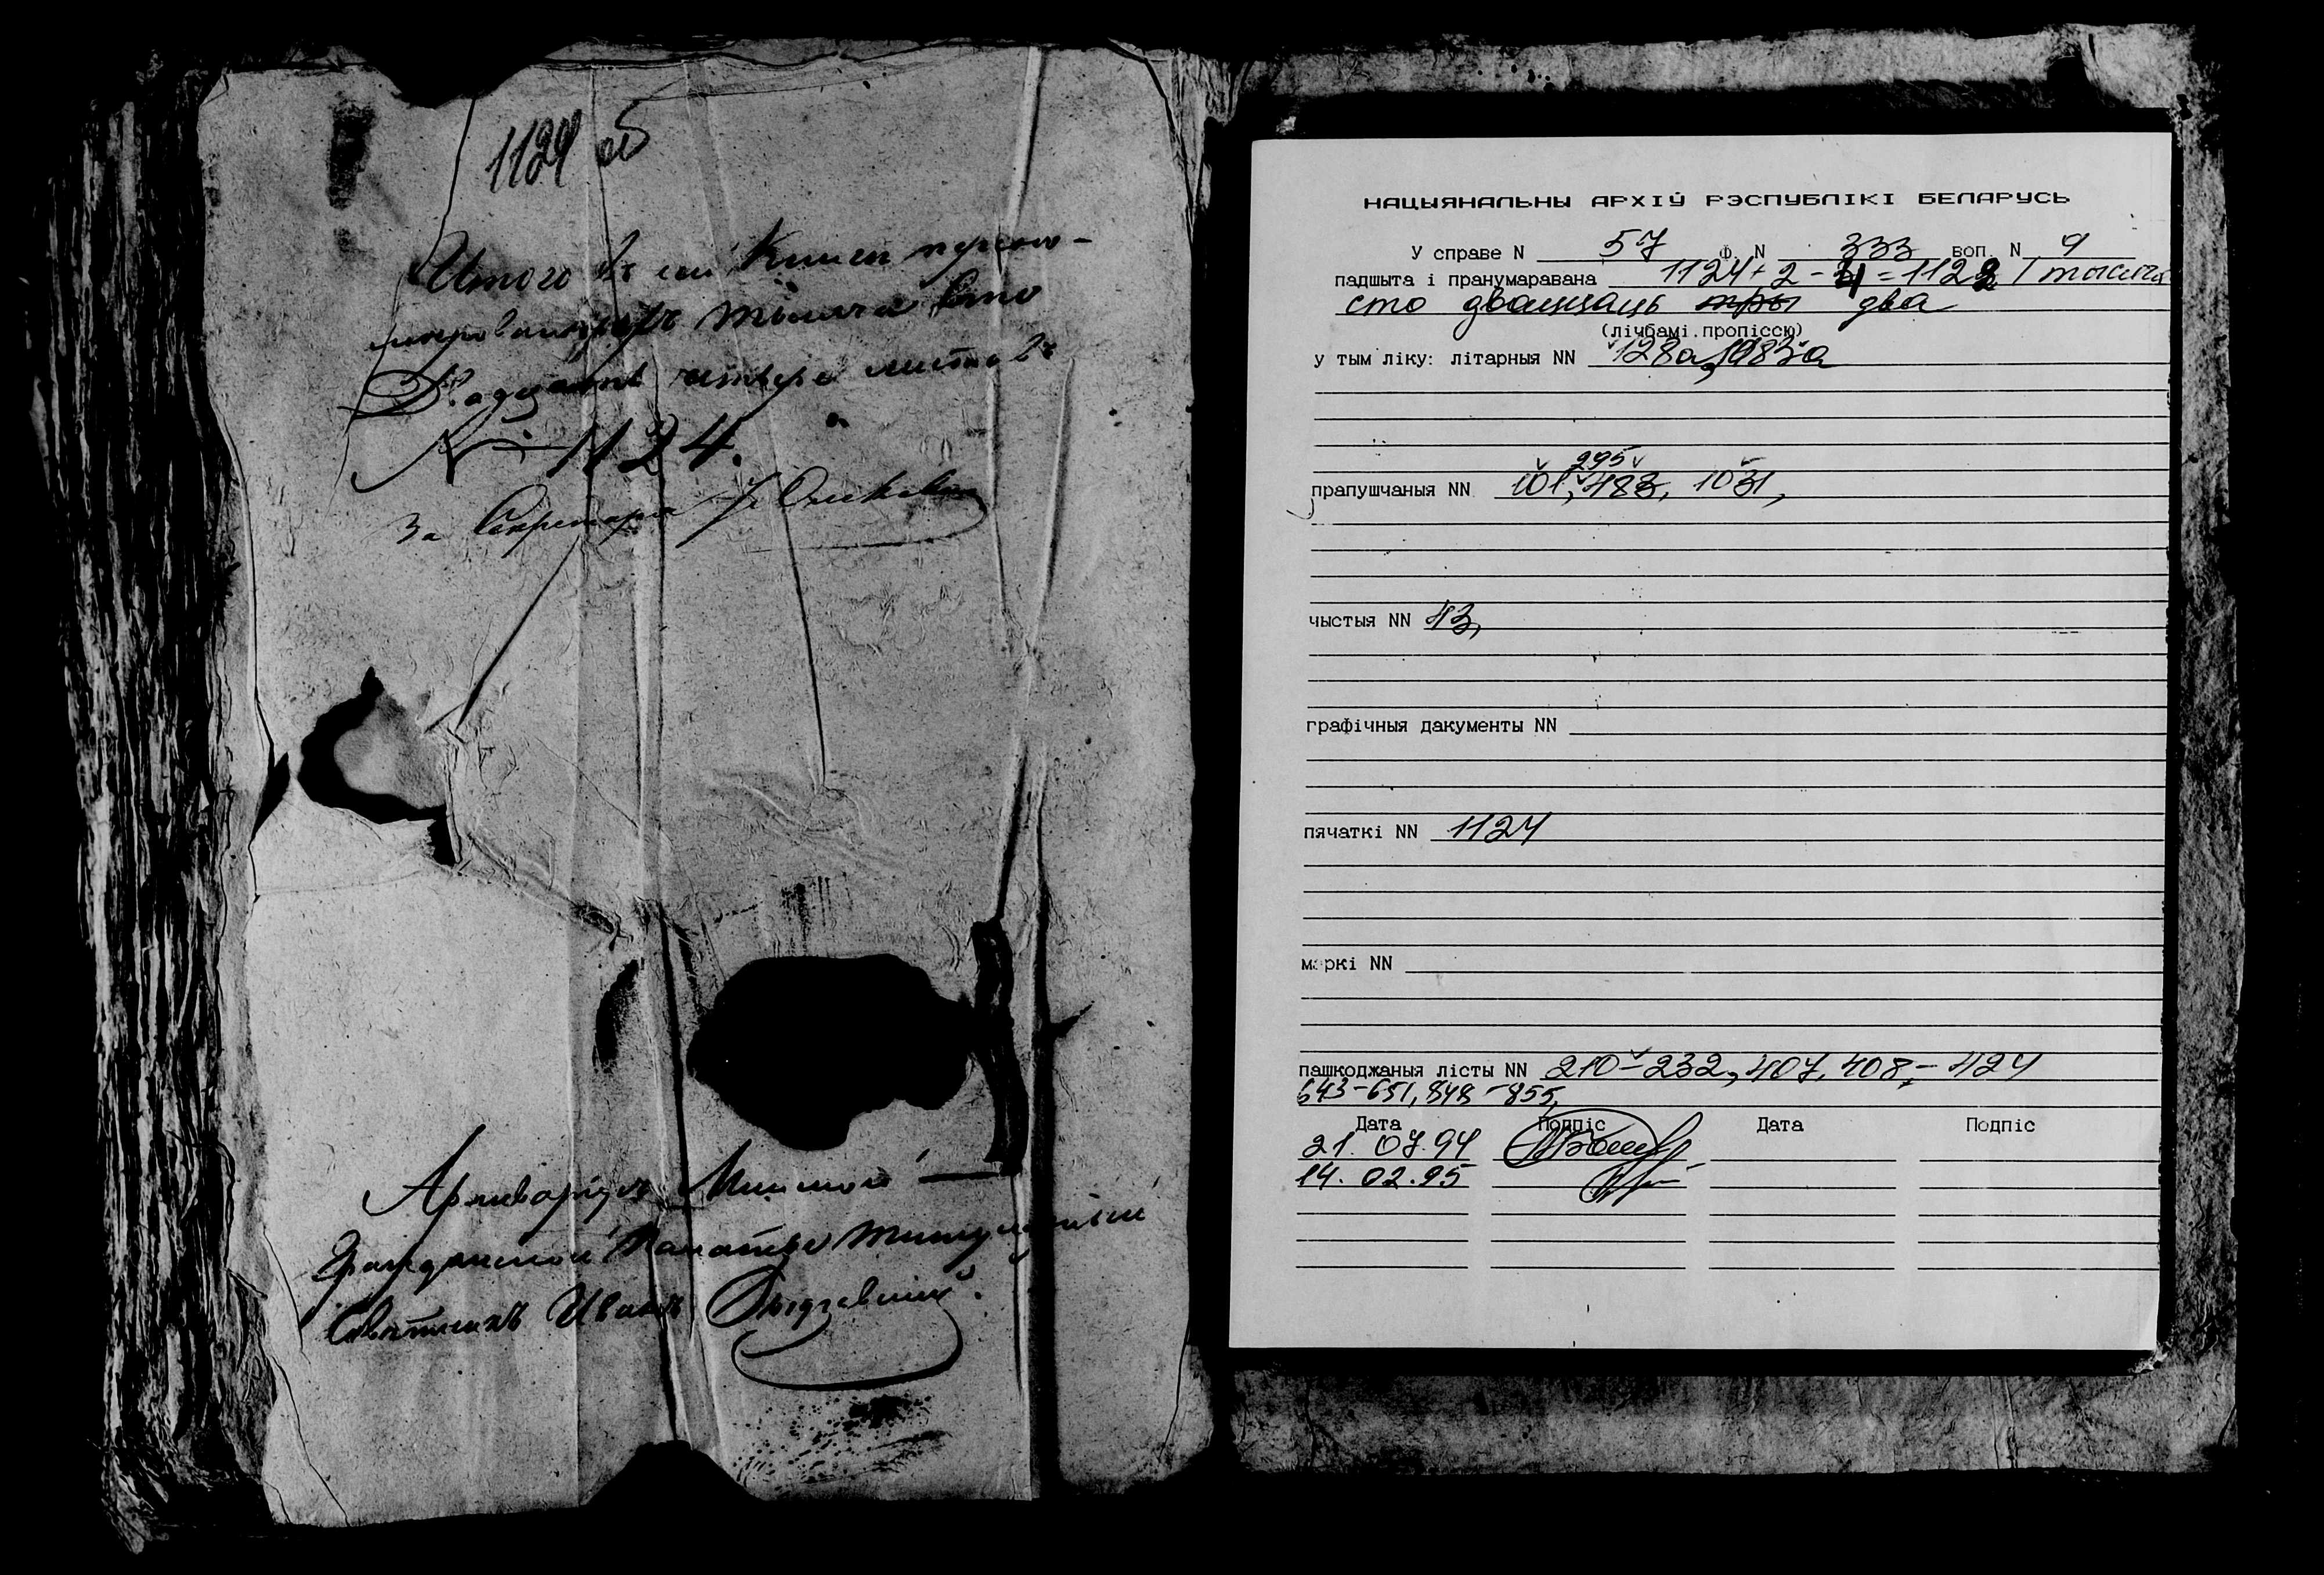 1124 об
Итого въ сей Книги нумеро-
тысяча сто
Двадцать четыре листа
№ 1124.
За Секретаря
Архиваріусъ Минской
Гражданской Палаты титулярный
Советникъ Иванъ
НАЦЫЯНАЛЬНЫ АРХІЎ РЭСПУБЛІКІ БЕЛАРУСЬ
У справе N 57 Ф. N 333 воп. N 9
падшыта і пранумаравана 1124+2-4=1122 / тысяча
сто дваццаць тры два
(лічбамі.пропіссю)
у тым ліку: літарныя NN 128а, 983а
295
прапушчаныя NN 101, 483, 1031,
чыстыя NN 43,
графічныя дакументы NN
пячаткі NN 1124
маркі NN
пашкоджаныя лісты NN 210-232, 407, 408, - 424
643-651, 848-855,
Дата Подпіс Дата Подпіс
21.07.94
14.02.95